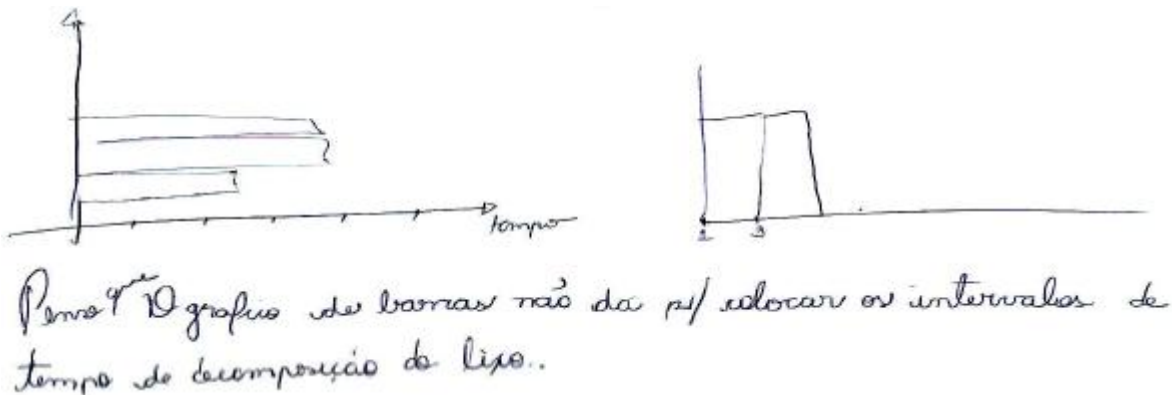 tempo
2 3
Penso que O grafico de barras não da p/ colocar os intervalos de
tempo de decomposição do lixo..